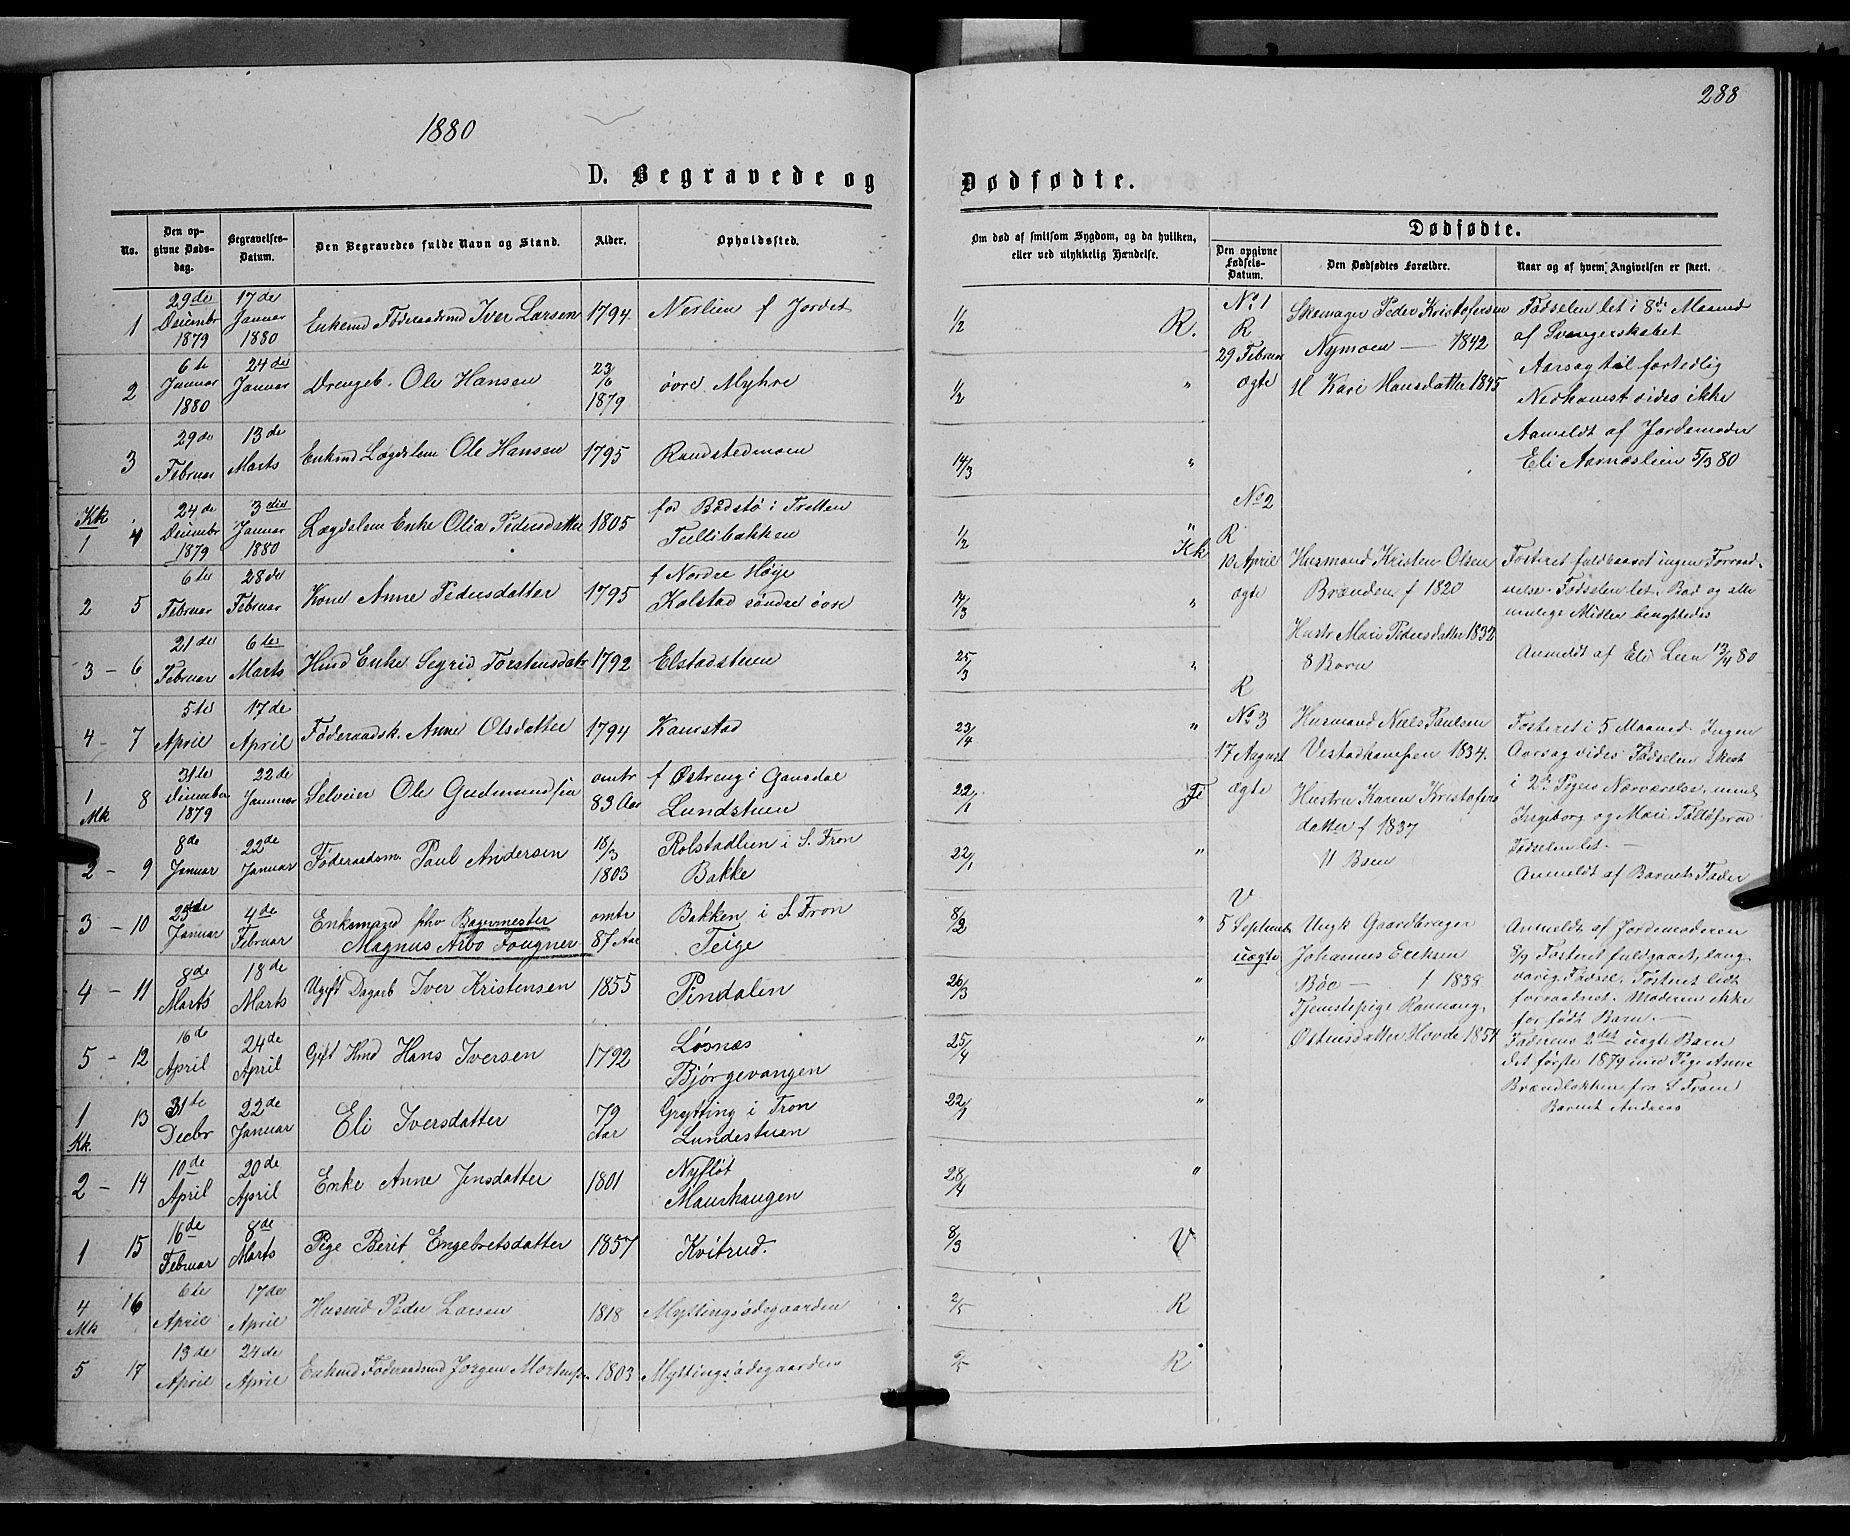 1880
288
D. Begravede og
Dødfødte.
No.
Den opgivne Døds-dag.
Begravelses-Datum.
Den Begravedes fulde Navn og Stand.
Alder.
Opholdssted.
Om død af smitsom Sygdom, og da hvilken, eller ved ulykkelig Hændelse.
Dødfødte.
Den opgivne Fødsels-Datum.
Den Dødfødtes Forældre.
Naar og af hvem Angivelsen er skeet.
1 29de Decembr 1879 17de Januar 1880 Enkemd Føderaadsmd Iver Larsen 1794 Nerlien f Jordet 1/2 R.
2 6te Januar 1880 24de Januar Drengeb. Ole Hansen 23/6 1879 øvre Myhre 1/2 "
3 29de Februar 13de Marts Enkmd Lægdslem Ole Hansen 1795 Randstedmoen 14/3 "
Kk 1 4 24de Decembr 1879 3die Januar 1880 Lægdslem Enke Olia Pedersdatter 1805 fød Bødstø i Tretten Tullibakken 1/2 " Kk
2 5 6te Februar 28de Februar Kone Anne Pedersdatter 1795 f Nordre Høye Kolstad søndre øvre 17/3 "
3 - 6 21de Februar 6te Marts Hmd Enke Segrid Torstensdatr 1792 Elstadstuen 25/3 "
4 - 7 5te April 17de April Føderaadsk. Anne Olsdatter 1794 Kamstad 23/4 "
1 Mk 8 31te Decembr 1879 22de Januar Selveier Ole Gudmundsen omtr 83 Aar f Østreng i Gausdal Lundstuen 22/1 Fe
2 - 9 8de Januar 22de Januar Føderaadsm. Paul Andersen 18/3 1803 Rolstadlien i S. Fron Bakke 22/1 "
3 - 10 25de Januar 4de Februar Enkemand fhv Bagermester Magnus Arbo Fougner omtr 87 Aar Bakken i S Fron Teige 8/2 "
4 - 11 8de Marts 18de Marts Ugift Dagarb Iver Kristensen 1855 Pindalen 26/3 "
5 - 12 16de April 24de April Gift Hmd Hans Iversen 1792 Løsnæs Bjørgevangen 25/4 "
1 Kk. 13 31te Decbr 22de Januar Eli Iversdatter 79 Aar Grytting i Fron Lundestuen 22/1 "
2 - 14 10de April 20de April Enke Anne Jensdatter 1801 Nyfløt Maurhaugen 28/4 "
1 15 16de Februar 8de Marts Pige Berit Engebretsdatter 1857 Kvitrud. 8/3 V
4 Mk 16 6te April 17de April Husmd Peder Larsen 1818 Myttingsødegaarden 2/5 R
5 17 13de April 24de April Enkmd Føderaadsmd Jørgen Mortensen 1803 Myttingsødegaarden 6/5 R
No 1
R
29 Februar
ægte
Skomager Peder Kristofersen
Nymoen — 1842
H Kari Hansdatter 1845
Fødselen let i 8de Maaned
af Svangerskabet
Aarsag til fortidlig
Nedkomst vides ikke
Anmeldt af Jordemoder
Eli Aarnæslien 5/3 80
No 2
R
10 April
ægte
Husmand Kristen Olsen
Brænden f 1820
Hustr Mari Pedersdatter 1832
8 Børn
Fosteret fuldbaaret ingen Forraad-
nelse. Fødselen let. Bad og alle
mulige Midler benyttedes
Anmeldt af Eli Lien 13/4 80
R
No 3
17 August
ægte
Husmand Niels Paulsen
Vestadkampen 1834.
Hustru Karen Kristofers
datter f 1837
11 Børn
Fosteret i 5 Maaned. Ingen
Aarsag vides Fødselen skeet
i 2de Pigers Nærværelse, med
Ingeborg og Mari
Fødselen let. —
Anmeldt af Barnets Fader
V
5 Septembr
uægte
Ungk Gaardbruger
Johannes Eriksen
Bøe — f 1838
Tjenestepige Rannaug
Østensdatter Hovde 1857
Anmeldt af Jordemoderen
8/9 Fosteret fuldgaaet, lang
varig Fødsel, Fosteret lidt
forraadnet. Moderen ikke
før født Barn. —
Faderens 2det uægte Barn
det første 1879 med Pige Anne
Brændbakken fra S Fron
Barnet Andreas